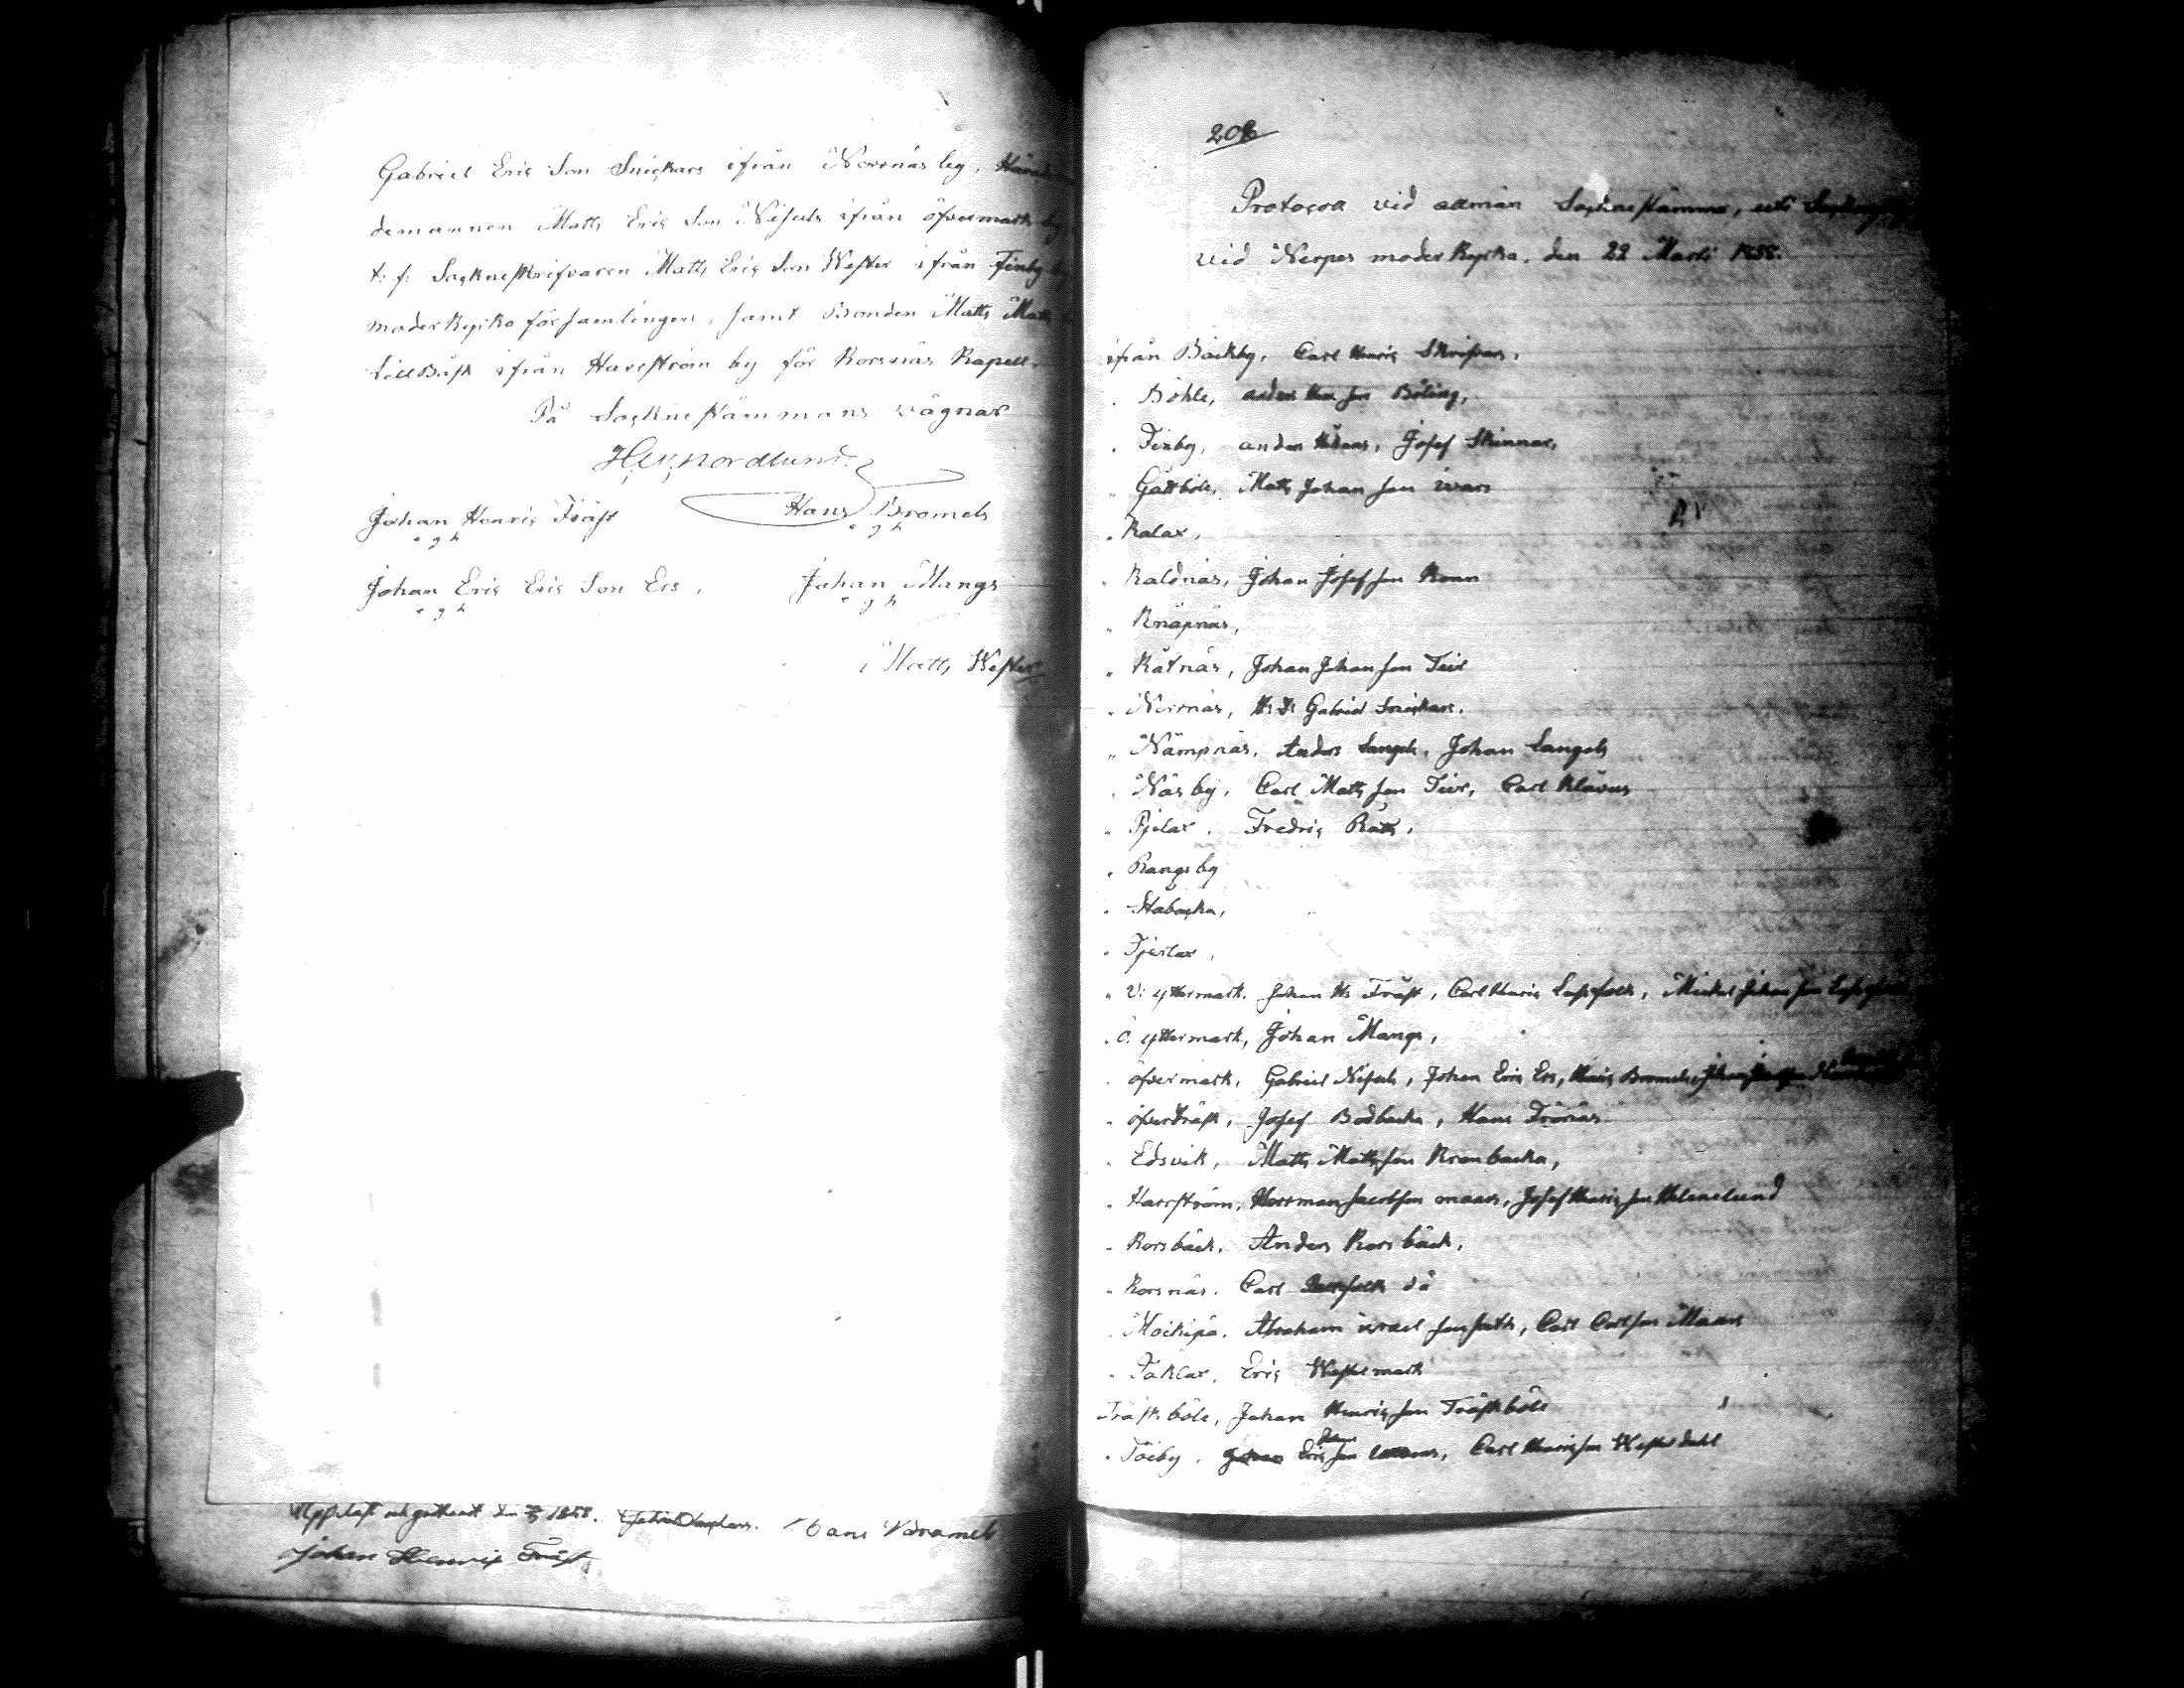 Gabriel Eric Son Snickars ifrån Norrnäs by,
demannen Matts Eric Son Nissula ifrån öfvermark by
t: f: Sockneskrifvaren Matts Eric Son Wester ifrån Finby
moderkyrko församlingen, samt Bonden Matts Matts
LillBåsk ifrån Harrström by för Korsnäs Kapell.
På Sockne stämmans vägnar
Nordlund.
Johan Henric Träsk
e g h
Hans Bromels
e g h
Johan Eric Eric Son Ers,
e g h
Johan Mangs
e g h
Matts Wester
Uppläst och godkändt den 1858. Hans Bromels
Johan Henric Träsk
208
Protocoll vid allmän Sockne stämma, uti
vid Nerpes moderkyrka. den 22 Marti 1858.
ifrån Bäckby, Carl Henric Skrifvars,
" Böhle, Böling,
" Finby, anders Josef Skinnar,
" Gottböle, Matts Johan son ivars
" Kalax,
" Kaldnäs, Johan Josef son Konn
" Knåpnäs,
" Kåtnäs, Johan Johan son Teir
" Norrnäs, Gabriel Snickars.
" Nämpnäs, Anders Langels, Johan Langels
" Näsby, Carl Matts son Teir, Carl Klåvus
" Pjelax, Fredric Råtts,
" Rangsby
" Ståbacka,
" Tjerlax,
" V: yttermark. Johan Hs Träsk, Carl Henric Lassfolk, Mickel Johan son
" Ö. yttermark, Johan Mangs,
" öfvermark, Gabriel Nissula, Johan Eric Ers, Bromels,
" öfverträsk, Josef Bodbacka, Hans Trönäs
" Edsvik, Matts Mattsson Kronbacka,
" Harrström, Herrman Jacobson Josef Henric son Helenelund
" Korsbäck, Anders Korsbäck,
" Korsnäs. Carl
" Moikipä. Abraham israel son Carl Carlson Maans
" Taklax, Eric Westermark
Träskböle, Johan Henric son Träskböle
" Töjby, Eric son Carl Henric son Westerdahl